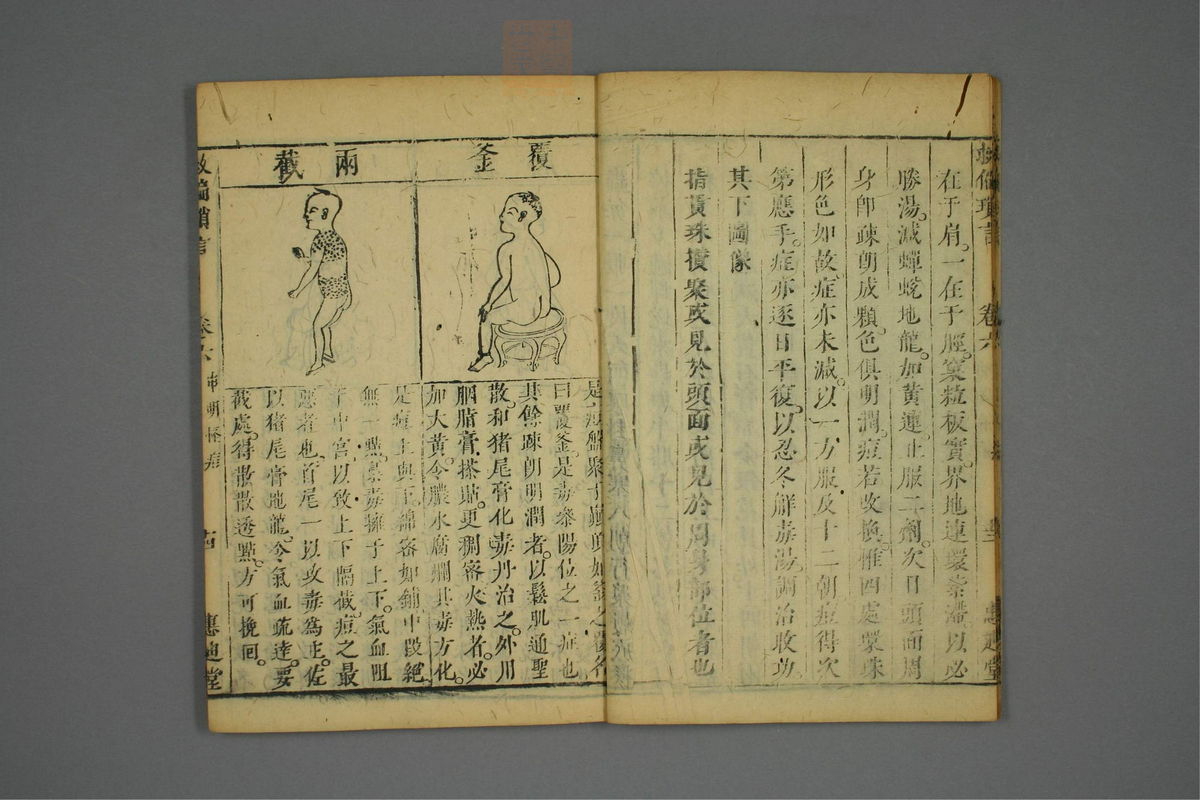 救偏瑣言
卷六
惠迪堂
在于肩。一在于脛。窠粒板實。界地連環紊滯。以必
勝湯。減蟬蛻地龍。加黃連。止服二劑。次日頭面周
身卽疎朗成顆。色俱明潤。痘若改換。惟四處窠珠
形色如故。症亦未減。以一方服及十二朝痘得次
第應手。症亦逐日平復。以忍冬解毒湯。調治收功。
其下圖像
指貫珠攢聚或見於頭面或見於周身部位者也
覆釜
兩截
是痘盤聚于巔頂如釜之覆名
曰覆釜。是毒參陽位之一症也
其餘疎朗明潤者。以鬆肌通聖
散。和猪尾膏化毒丹治之。外用
胭脂膏搽貼。更稠密火熱者。必
加大黃。令膿水腐爛其毒方化。
是痘上與下綿密如鋪中段絕
無一點。是毒擁于上下。氣血阻
于中宮以致上下隔截。痘之最
惡者也。首尾一以攻毒爲主。佐
以猪尾膏地龍。令氣血疏達。要
截處。得散散透點。方可挽回。
救偏瑣言
卷六
十四
惠迪堂